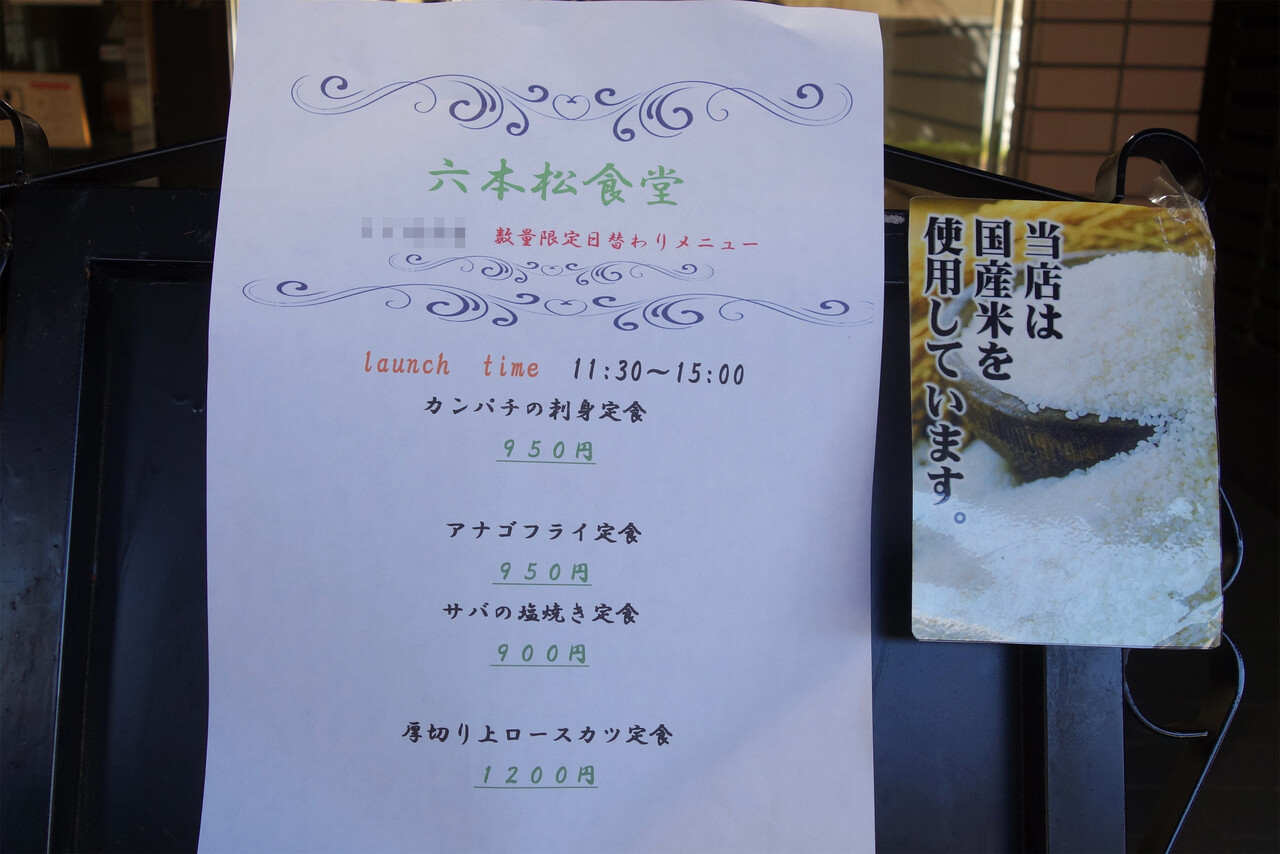 六本松食堂
数量限定日替わりメニュー
launch time 11:30～15:00
カンパチの刺身定食
９５０円
アナゴフライ定食
９５０円
サバの塩焼き定食
９００円
厚切り上ロースカツ定食
１２００円
当店は
国産米を
使用しています。